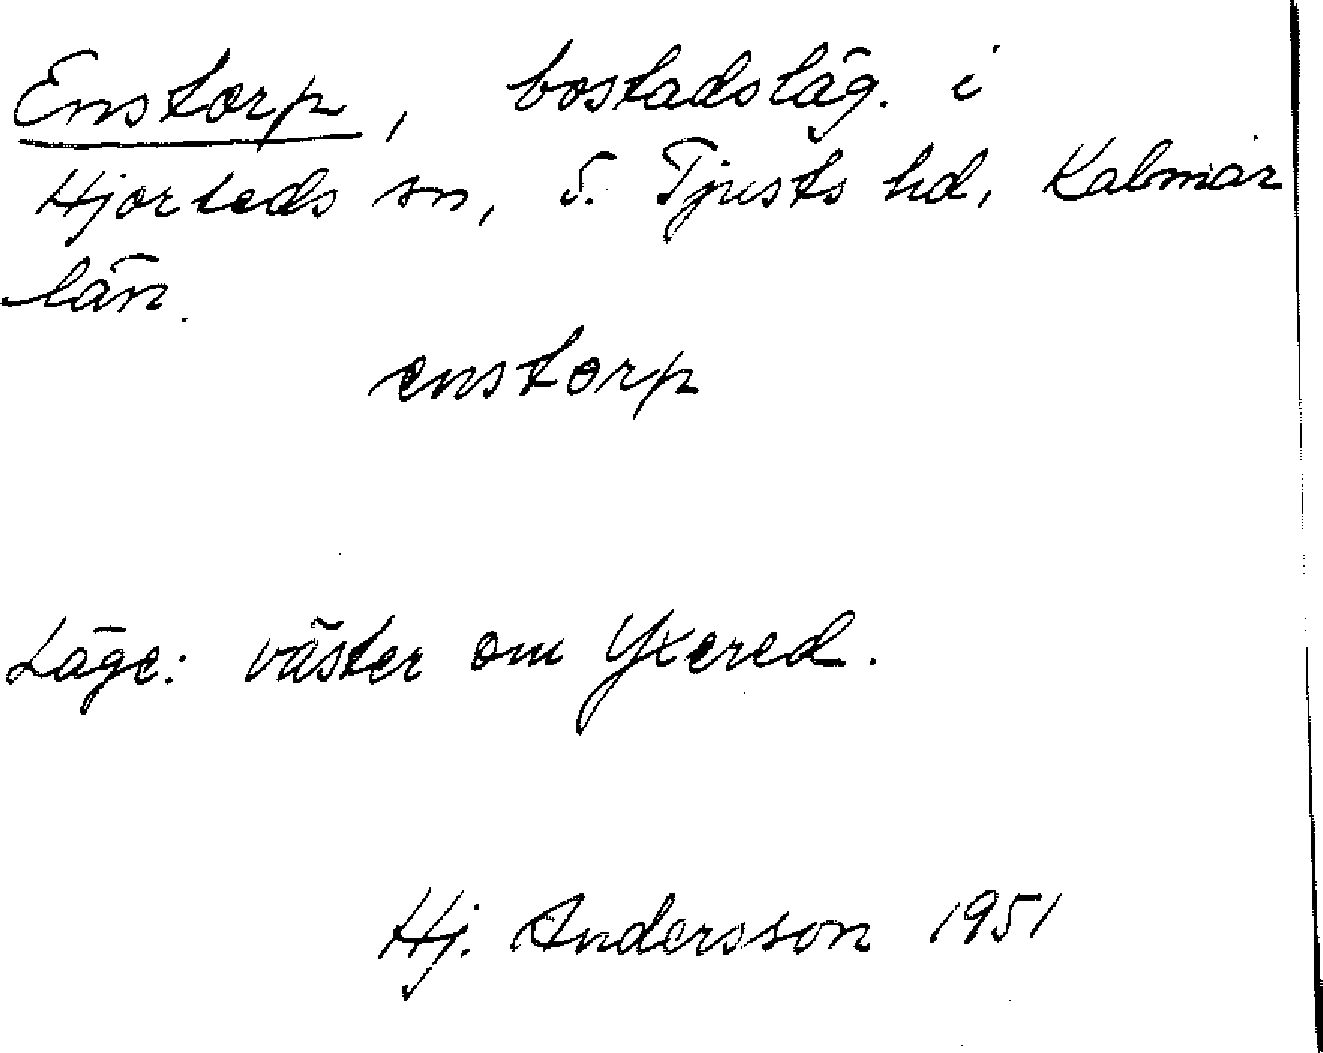 Enstorp, bostadsläg. i
Hjorteds sn, S. Tjusts hd, Kalmar
län.
enstorp
Läge: väster om Yxered.
Hj. Andersson 1951